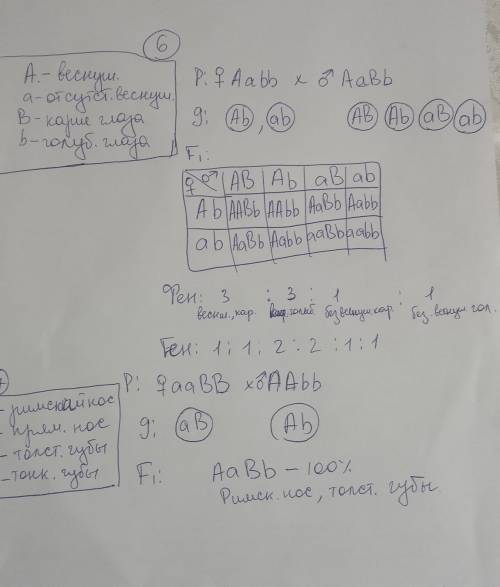 6
A.- веснуш.
a- отсутст. веснуш.
B- карие глаза
b- голуб. глаза
P: ♀ Aabb x ♂ AaBb
g: Ab, ab AB Ab aB ab
F₁:
♀ ♂ AB Ab aB ab
Ab AABb AAbb AaBb Aabb
ab AaBb Aabb aaBb aabb
Фен: 3 : 3 : 1 : 1
веснуш., кар. голуб без веснуш кар. без. веснуш гол.
Ген: 1 : 1 : 2 : 2 : 1 : 1
P: ♀ aaBB x ♂ AAbb
- римский нос
- прям. нос
- толст. губы
- тонк. губы
g: aB Ab
F₁: AaBb – 100%
Римск. нос, толст. губы.